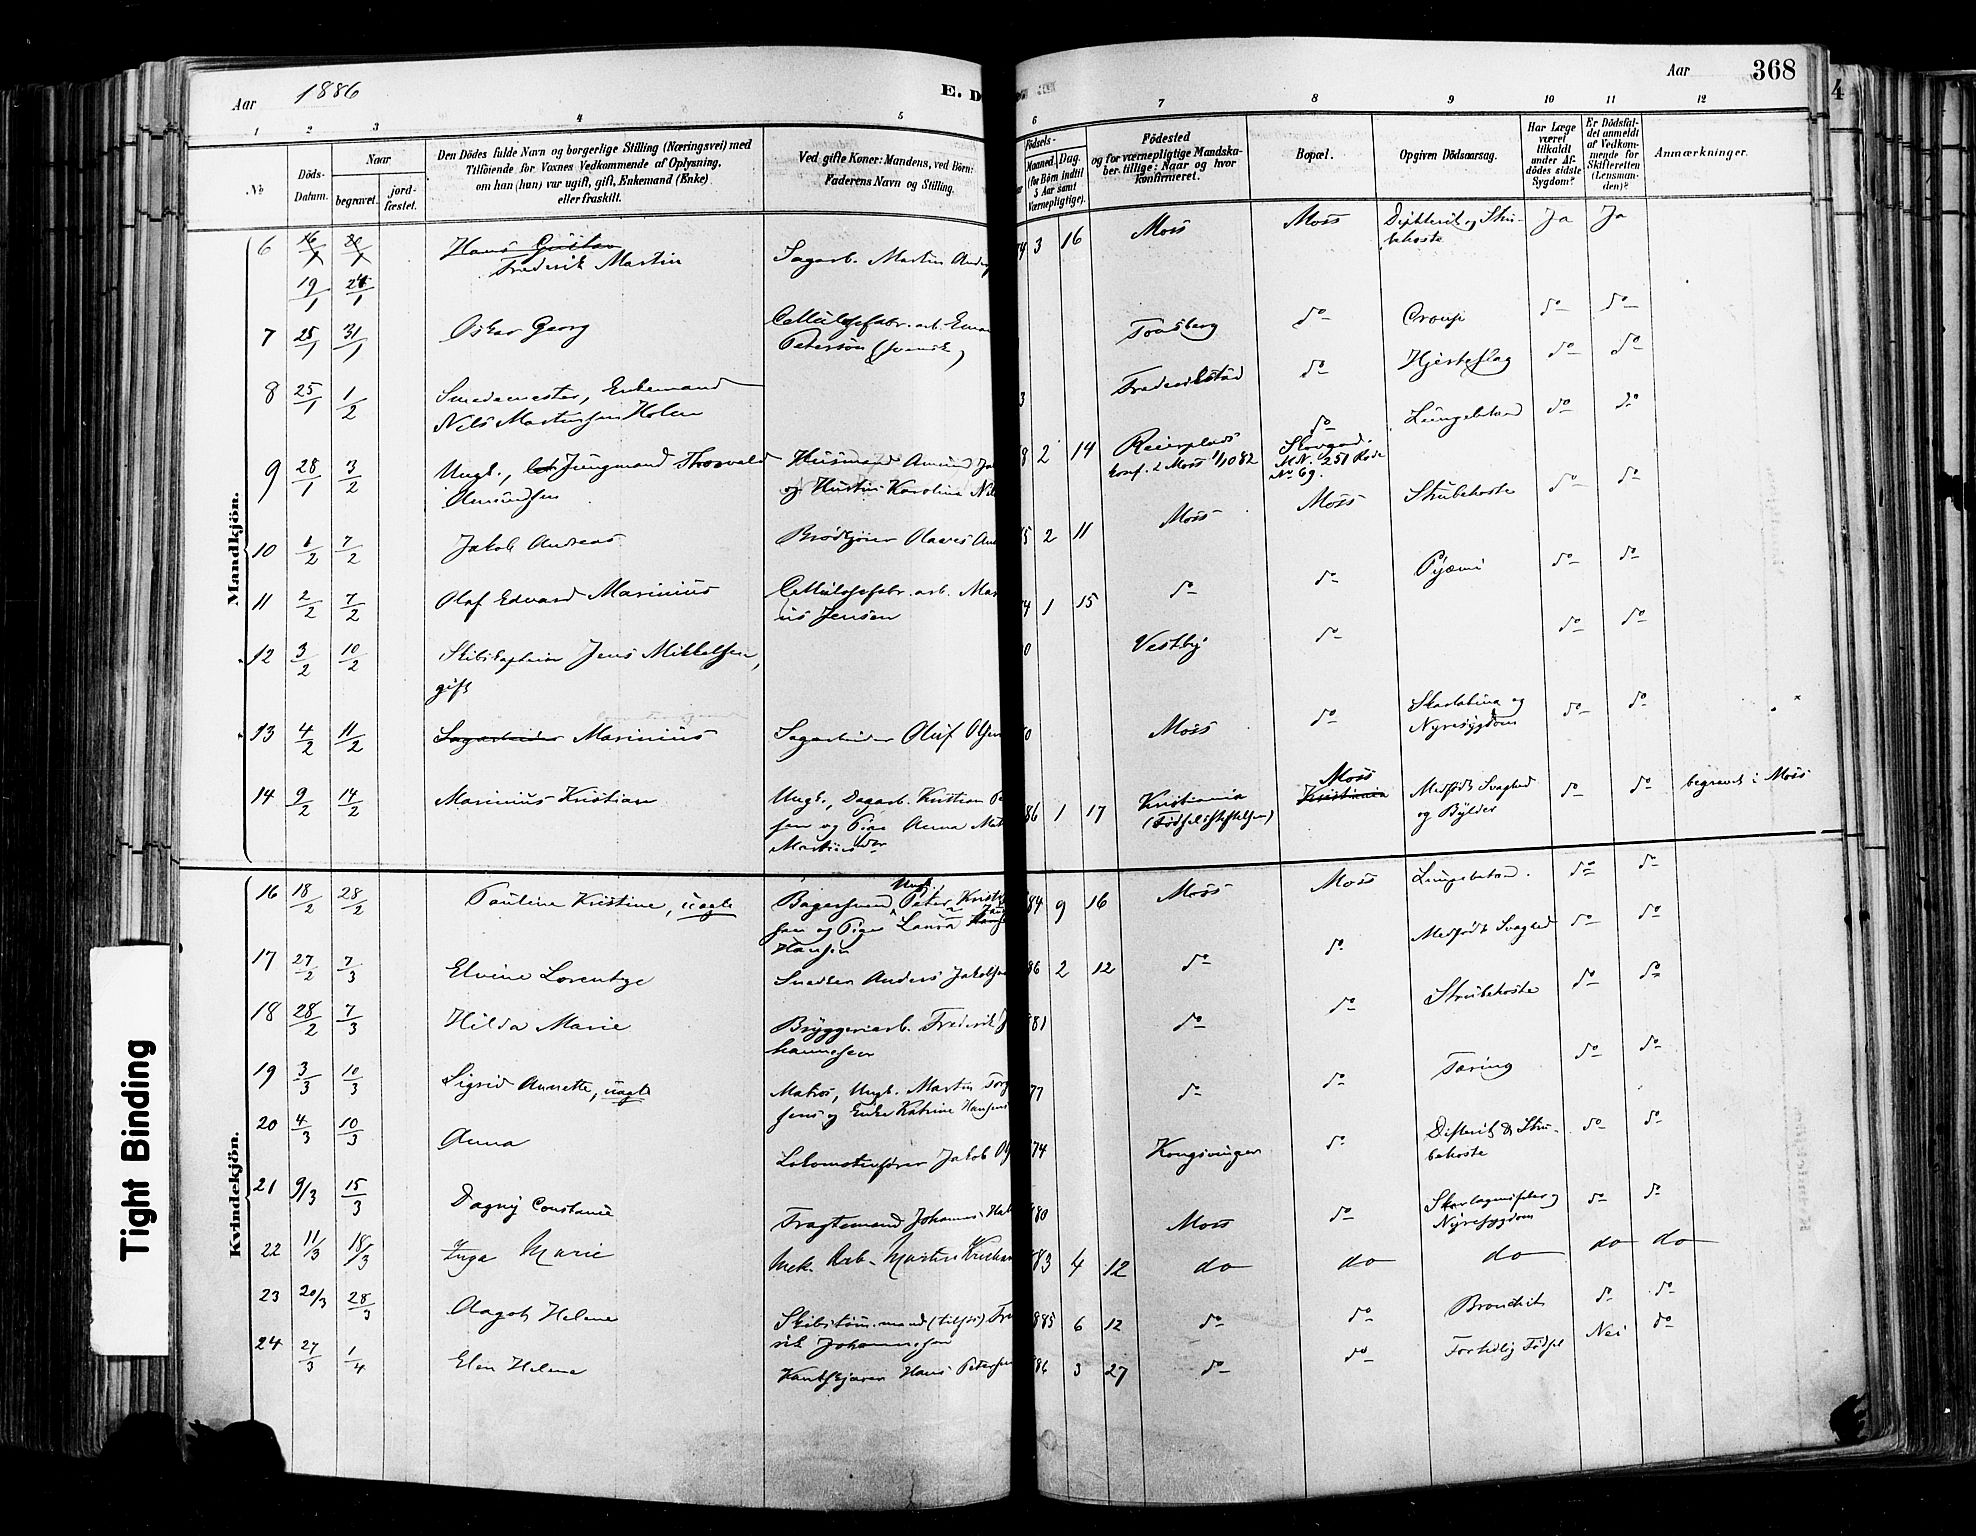 Aar 1886
E. D
Aar 368
1 2 3 4 5 6 7 8 9 10 11 12
No
Döds-Datum.
Naar
begravet.
jord-fæstet.
Den Dödes fulde Navn og borgerlige Stilling (Næringsvei) med
Tilföiende for Voxnes Vedkommende af Oplysning,
om han (hun) var ugift, gift, Enkemand (Enke)
eller fraskilt.
Ved gifte Koner: Mandens, ved Börn:
Faderens Navn og Stilling.
Födsels-
Maaned. Dag.
(for Börn indtil
5 Aar samt
Værnepligtige).
Födested
og for værnepligtige Mandska-
ber tillige: Naar og hvor
konfirmeret.
Bopæl.
Opgiven Dödsaarsag.
Har Læge
været
tilkaldt
under Af-
dödes sidste
Sygdom?
Er Dödsfal-
det anmeldt
af Vedkom-
mende for
Skifteretten
(Lensman-
den)?
Anmærkninger.
Mandkjön.
6 16/1 20/1 Hans Gustav 3 16 Moss Moss Difterit og Stru- Ja Ja
Frederik Martin Sagarb. Martin Ander behoste
19/1 24/1
7 25/1 31/1 Oskar Georg Cellulosefabr. arb. Eman Tonsberg do Croup do do
Peterson (svensk)
8 25/1 1/2 Smedemester, Enkemand 3 Frederikstad do Hjerteslag do do
Nils Martinsen Holm
9 28/1 3/2 Ungk., Jungmand Thorvald Husmand Amund Ja 8 2 14 Reierplads do Lungebetænd do do
Amundsen og Hustru Karoline Nil konf. i Moss 1/10 82 Skovgad. M.N. 251 Rode No 69.
10 1/2 7/2 Jakob Andreas Brödkjörer Olaves And 5 2 11 Moss Moss Strubehoste do do
11 2/2 7/2 Olaf Edvard Marinius Cellulosefabr. arb. Mar 4 1 15 do do Pyæmi do do
us Jensen
12 3/2 10/2 Skibskaptein Jens Mikkelsen, 0 Vestby do do do
gift
13 4/2 11/2 Sagarbeider Marinius Sagarbeider Oluf Olsen 0 Moss do Skarlatina og do do
Nyresygdom
14 9/2 14/2 Marinius Kristian Ungk., Dagarb. Kristian Pe 86 1 17 Kristiania Moss Medfödt Svaghed do do begravet i Moss
sen og Pige Anna Mat (Födselsstiftelsen) Kristiania og Bylder
Martinsdtr
Kvindekjön.
16 18/2 28/2 Pauline Kristine, uægte Bagersvend Ungk. Peter Kristi 84 9 16 Moss Moss Lungebetænd. do do
sen og Pige Laura
Hansen
17 27/2 7/3 Elvine Lorentze Snedker Anders Jakobsen 86 2 12 do do Medfödt Svaghed do do
18 28/2 7/3 Hilda Marie Bryggeriarb. Frederik J 81 do do Strubehoste do do
hannesen
19 3/3 10/3 Sigrid Annette, uægte Matros, Ungk. Martin Torg 77 do do Tæring do do
sen og Enke Katrine Hansens
20 4/3 10/3 Anna Lokomotivförer Jakob Ols 74 Kongsvinger do Difterit & Stru- do do
behoste
21 9/3 15/3 Dagny Constance Fragtemand Johannes Hal 80 Moss do Skarlagensfeber og do do
Nyresygdom
22 11/3 18/3 Inga Marie Mek. Arb. Martin Kristian 83 4 12 do do do do do
23 20/3 28/3 Aagot Helene Skibstöm.mand (tilsjös) Fre 885 6 12 do do Bronchit do do
rik Johannesen
24 27/3 1/4 Elen Helene Kantskjærer Hans Petersen 86 3 27 do do Fortidlig Födsel Nei do
Tight Binding
4